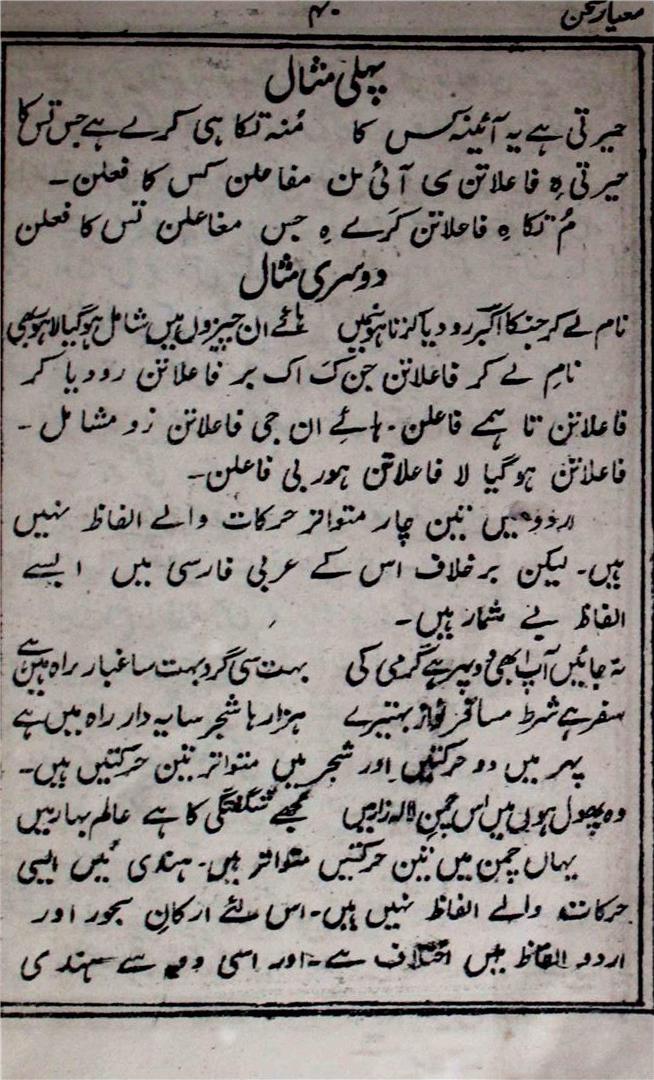 معیار سخن ۴۰
پہلی مثال
حیرتی ہے یہ آئینہ کس کا منہ تکا ہی کرے ہے جس تس کا
حیرتی ہِ فاعلاتن ی آئی نن مفاعلن کس کا فعلن ۔
مُ تکا ہِ فاعلاتن کَرے ہِ جس مفاعلن تس کا فعلن
دوسری مثال
نام لے کر جنکا اکبر رو دیا کرتا ہوں میں ہائے ان چیزوں میں شامل ہو گیا لاہور بھی
نامِ لے کر فاعلاتن جن کَ اک بر فاعلاتن رو دیا کر
فاعلاتن تا ہمے فاعلن ۔ ہائے ان جی فاعلاتن زو مشامل ۔
فاعلاتن ہو گیا لا فاعلاتن ہور بی فاعلن ۔
اردو میں تین چار متواتر حرکات والے الفاظ نہیں
ہیں ۔ لیکن برخلاف اس کے عربی فارسی میں ایسے
الفاظ بے شمار ہیں ۔
نہ جائیں آپ ابھی دوپہر ہے گرمی کی بہت سی گرد بہت سا غبار راہ میں ہے
سفر ہے شرط مسافر نواز بہتیرے ہزارہا شجر سایہ دار راہ میں ہے
پہر میں دو حرکتیں اور شجر میں متواتر تین حرکتیں ہیں ۔
وہ پھول ہوں میں اس چمن لالہ زار میں مجھے شگفتگی کا ہے عالم بہار میں
یہاں چمن میں تین حرکتیں متواتر ہیں ۔ ہندی میں ایسی
حرکات والے الفاظ نہیں ہیں ۔ اس لئے ارکانِ بحور اور
اردو الفاظ میں اختلاف ہے ۔ اور اسی وجہ سے ہندی